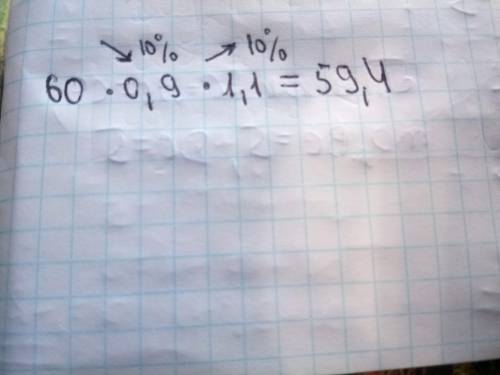 ↘ 10% ↗ 10%
60 · 0,9 · 1,1 = 59,4